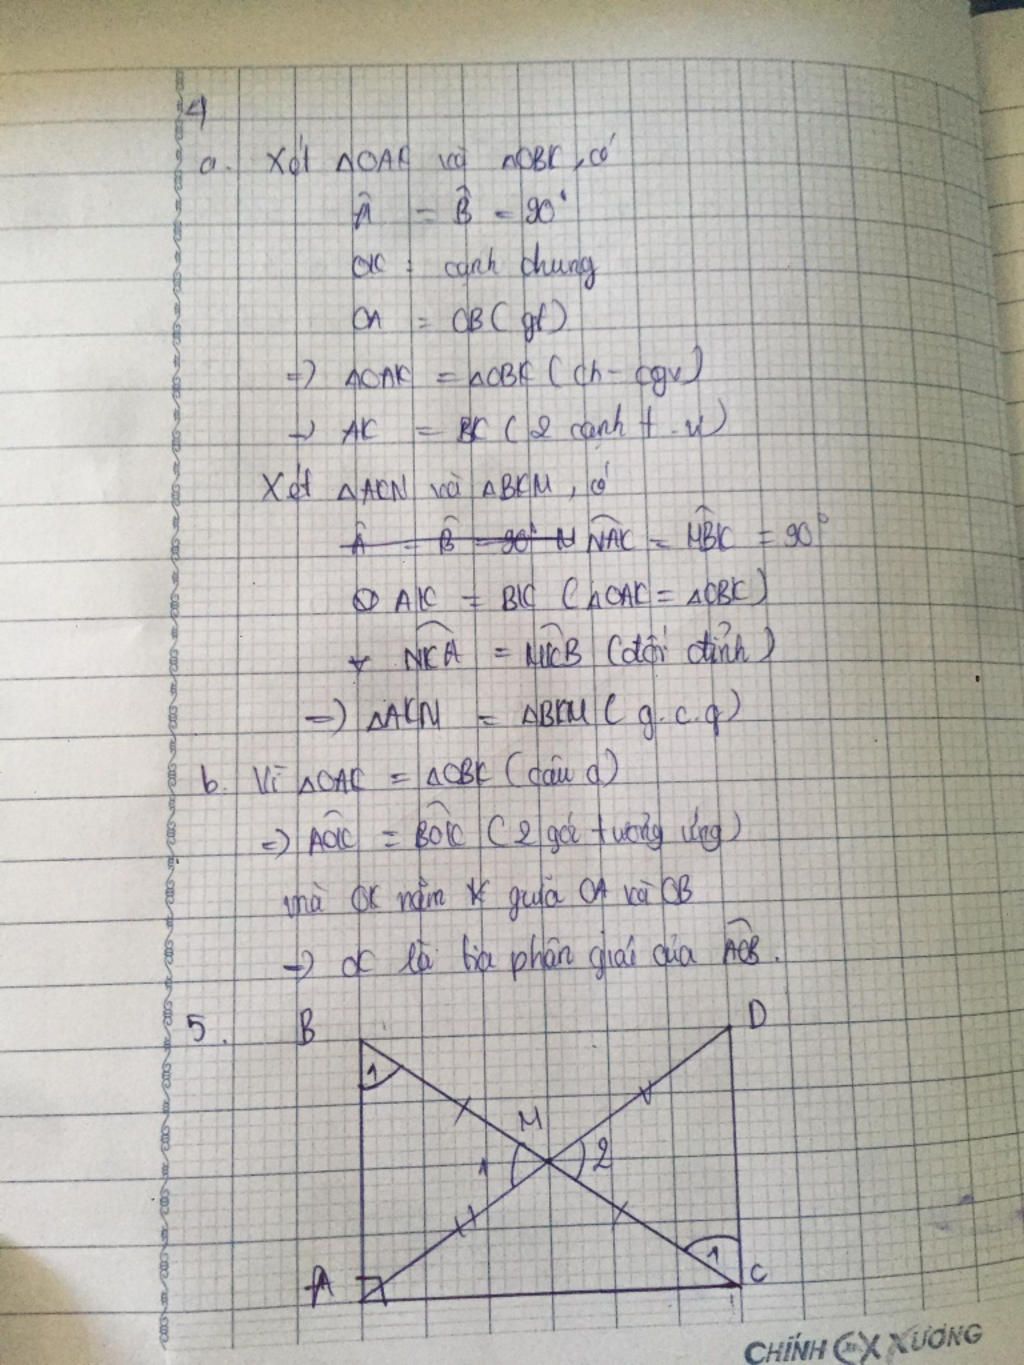 4
a. Xét △OAK và △OBK, có
Â = B̂ = 90°
OK : cạnh chung
OA = OB (gt)
=> △OAK = △OBK (ch - cgv)
-> AK = BK (2 cạnh t.ư)
Xét △AKN và △BKM, có
Â = B̂ = 90° N NAK = MBK = 90°
AK = BK (△OAK = △OBK)
+ NKA = MKB (đối đỉnh)
=> △AKN = △BKM (g.c.g)
b. Vì △OAK = △OBK (câu a)
=> AOK = BOK (2 góc tương ứng)
mà OK nằm giữa OA và OB
=> OK là tia phân giác của AOB.
5. B D
1
M
1 2
1
A C
CHÍNH XƯƠNG